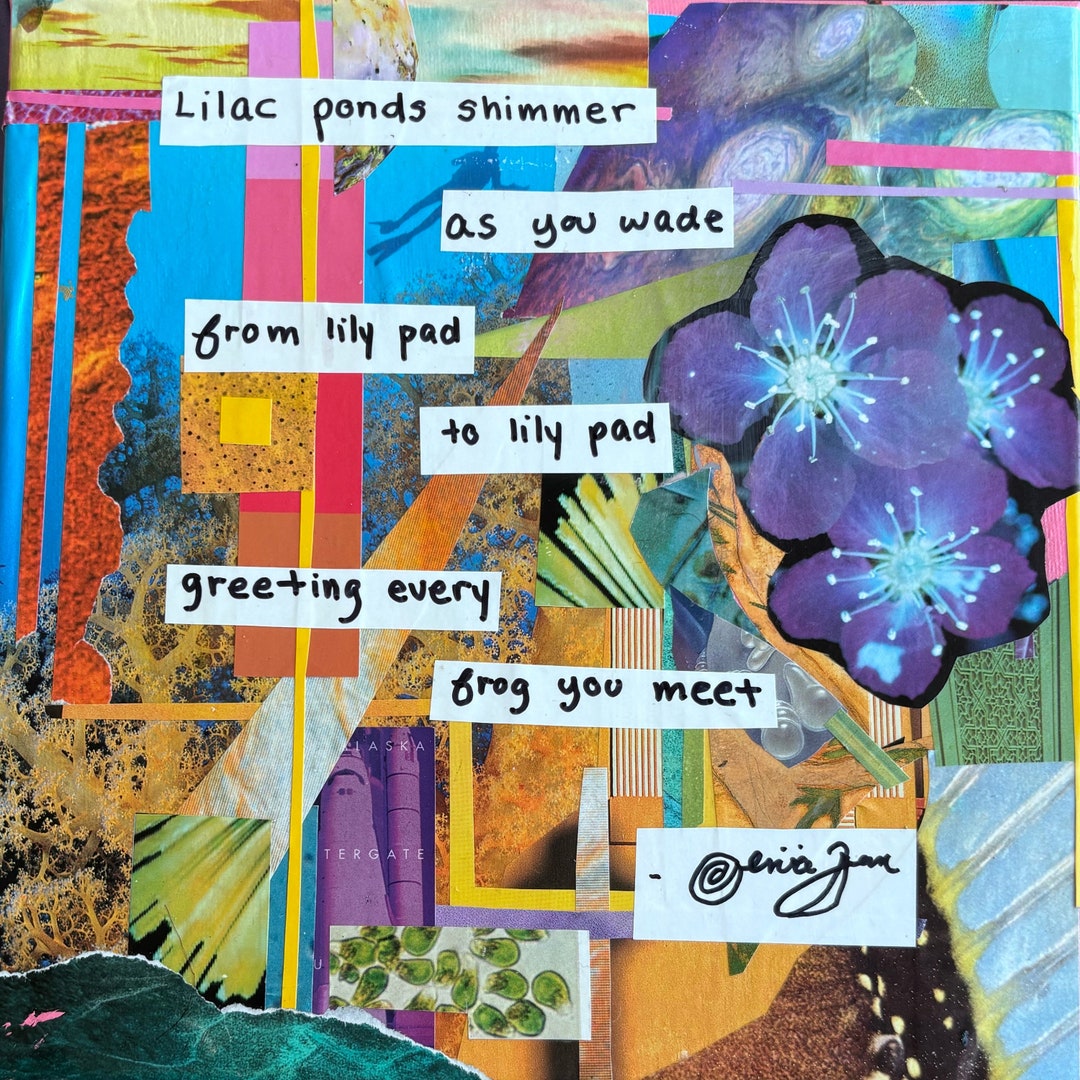 Lilac ponds shimmer
as you wade
from lily pad
to lily pad
greeting every
frog you meet
LASKA
TERGATE